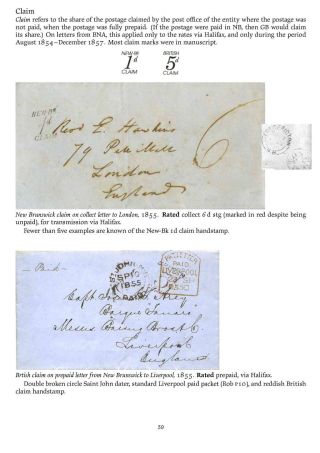 Claim
Claim refers to the share of the postage claimed by the post office of the entity where the postage was
not paid, when the postage was fully prepaid. (If the postage were paid in NB, then GB would claim
its share.) On letters from BNA, this applied only to the rates via Halifax, and only during the period
August 1854–December 1857. Most claim marks were in manuscript.
NEW-BK
1d
CLAIM
BRITISH
5d
CLAIM
NEW-BK
1d
CLAIM
Revd E. Hawkins
79 Pall Mall
London
England
6
New Brunswick claim on collect letter to London, 1855. Rated collect 6 d stg (marked in red despite being
unpaid), for transmission via Halifax.
Fewer than five examples are known of the New-Bk 1d claim handstamp.
Paid
ST JOHN
SP 10
1855
PAID
PKT LETTER
PAID
LIVERPOOL
Capt
Barque
Messrs Baring Bros & Co.
Liverpool
England
Brtish claim on prepaid letter from New Brunswick to Liverpool, 1855. Rated prepaid, via Halifax.
Double broken circle Saint John dater, standard Liverpool paid packet (Rob P10), and reddish British
claim handstamp.
50